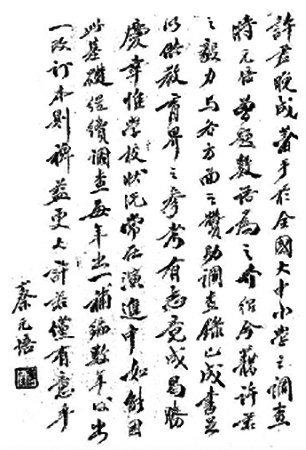 許君晚成著手於全國大中小學之調查
時元培曾題數語爲之介紹今藉許君
之毅力与各方面之贊助調查錄已成書足
以供教育界之參考有志竟成曷勝
慶幸惟學校狀況常在演進中如能因
此基礎繼續調查每年出一補編數年必出
一改訂本則裨益更大許君僅有意乎
蔡元培